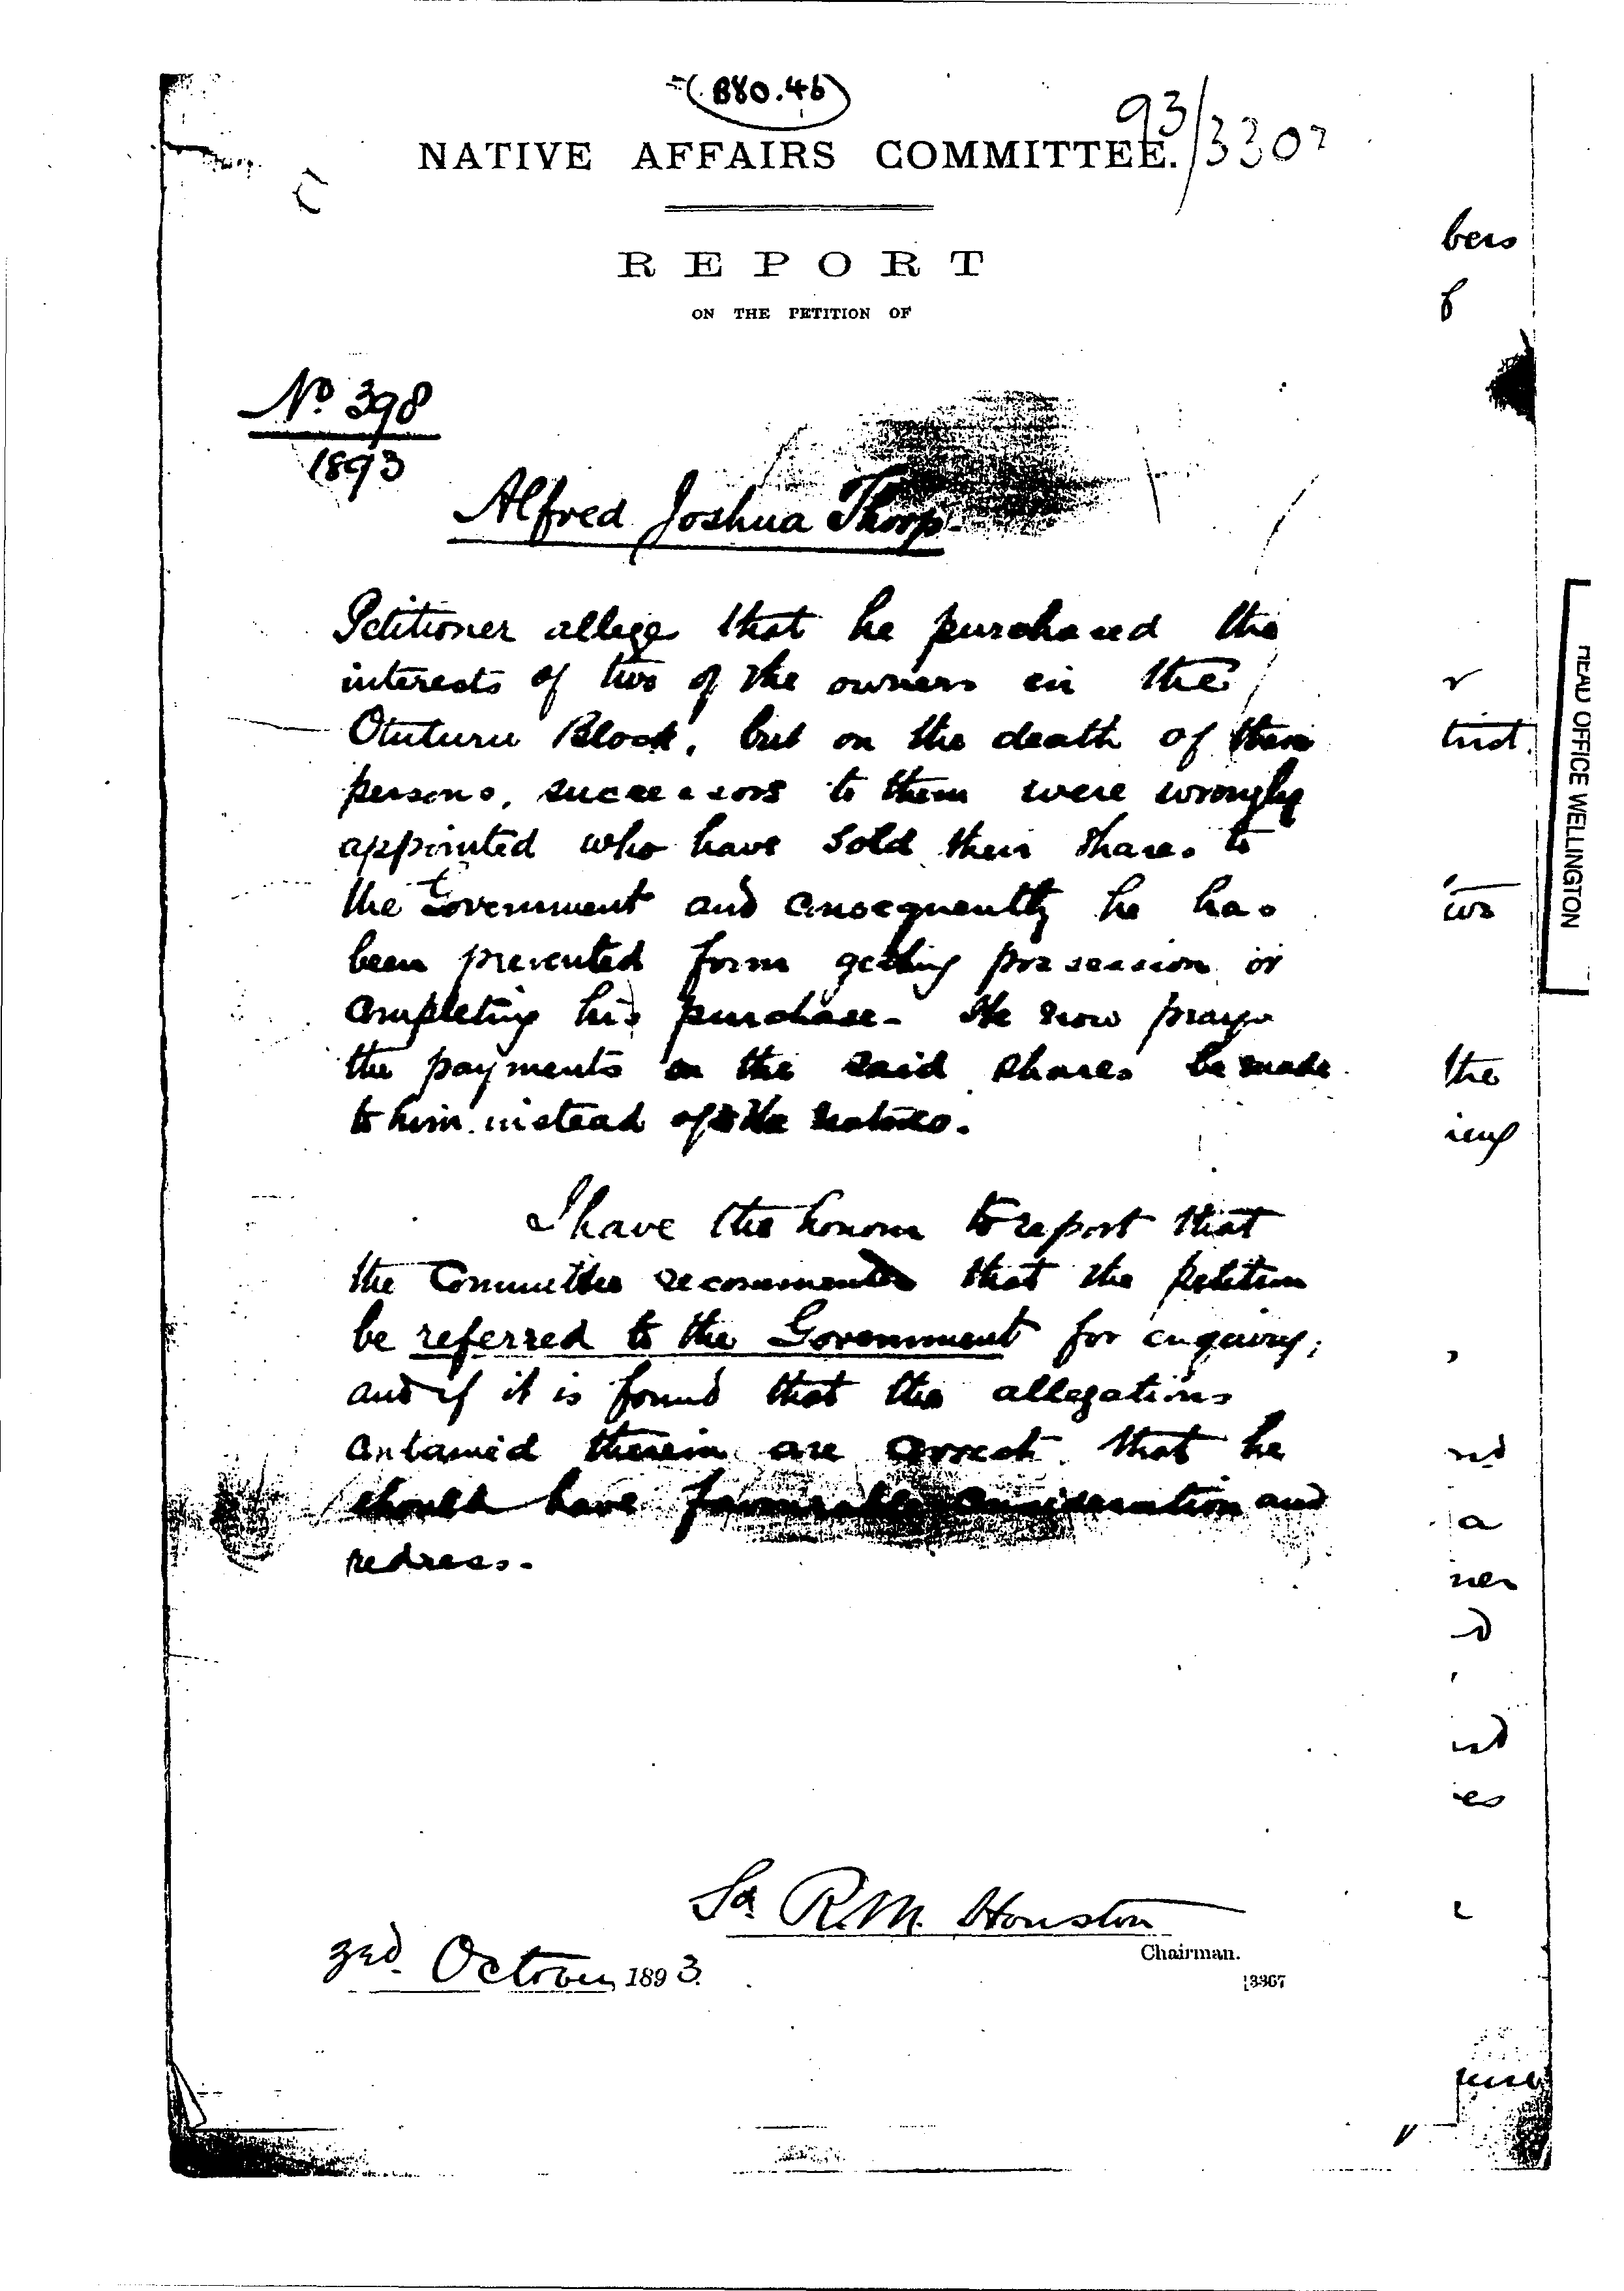 B80.46
93/330
NATIVE AFFAIRS COMMITTEE.
REPORT
ON THE PETITION OF
No. 398
1893
Alfred Joshua Thorp
Petitioner alleges that he purchased the
interests of two of the owners in the
Otuturu Block, but on the death of these
persons, successors to them were wrongly
appointed who have sold their shares to
the Government and consequently he has
been prevented form getting possession or
completing his purchase. He now prays
the payments on the said shares be made
to him instead of the natives.
I have the honour to report that
the Committee recommends that the petition
be referred to the Government for enquiry;
and if it is found that the allegations
contained therein are correct that he
should have favourable consideration and
redress.
Sd R.M. Houston
Chairman.
3rd October 1893.
3367
bers
f
r
trict.
the
ing
nd
a
ner
es
HEAD OFFICE WELLINGTON